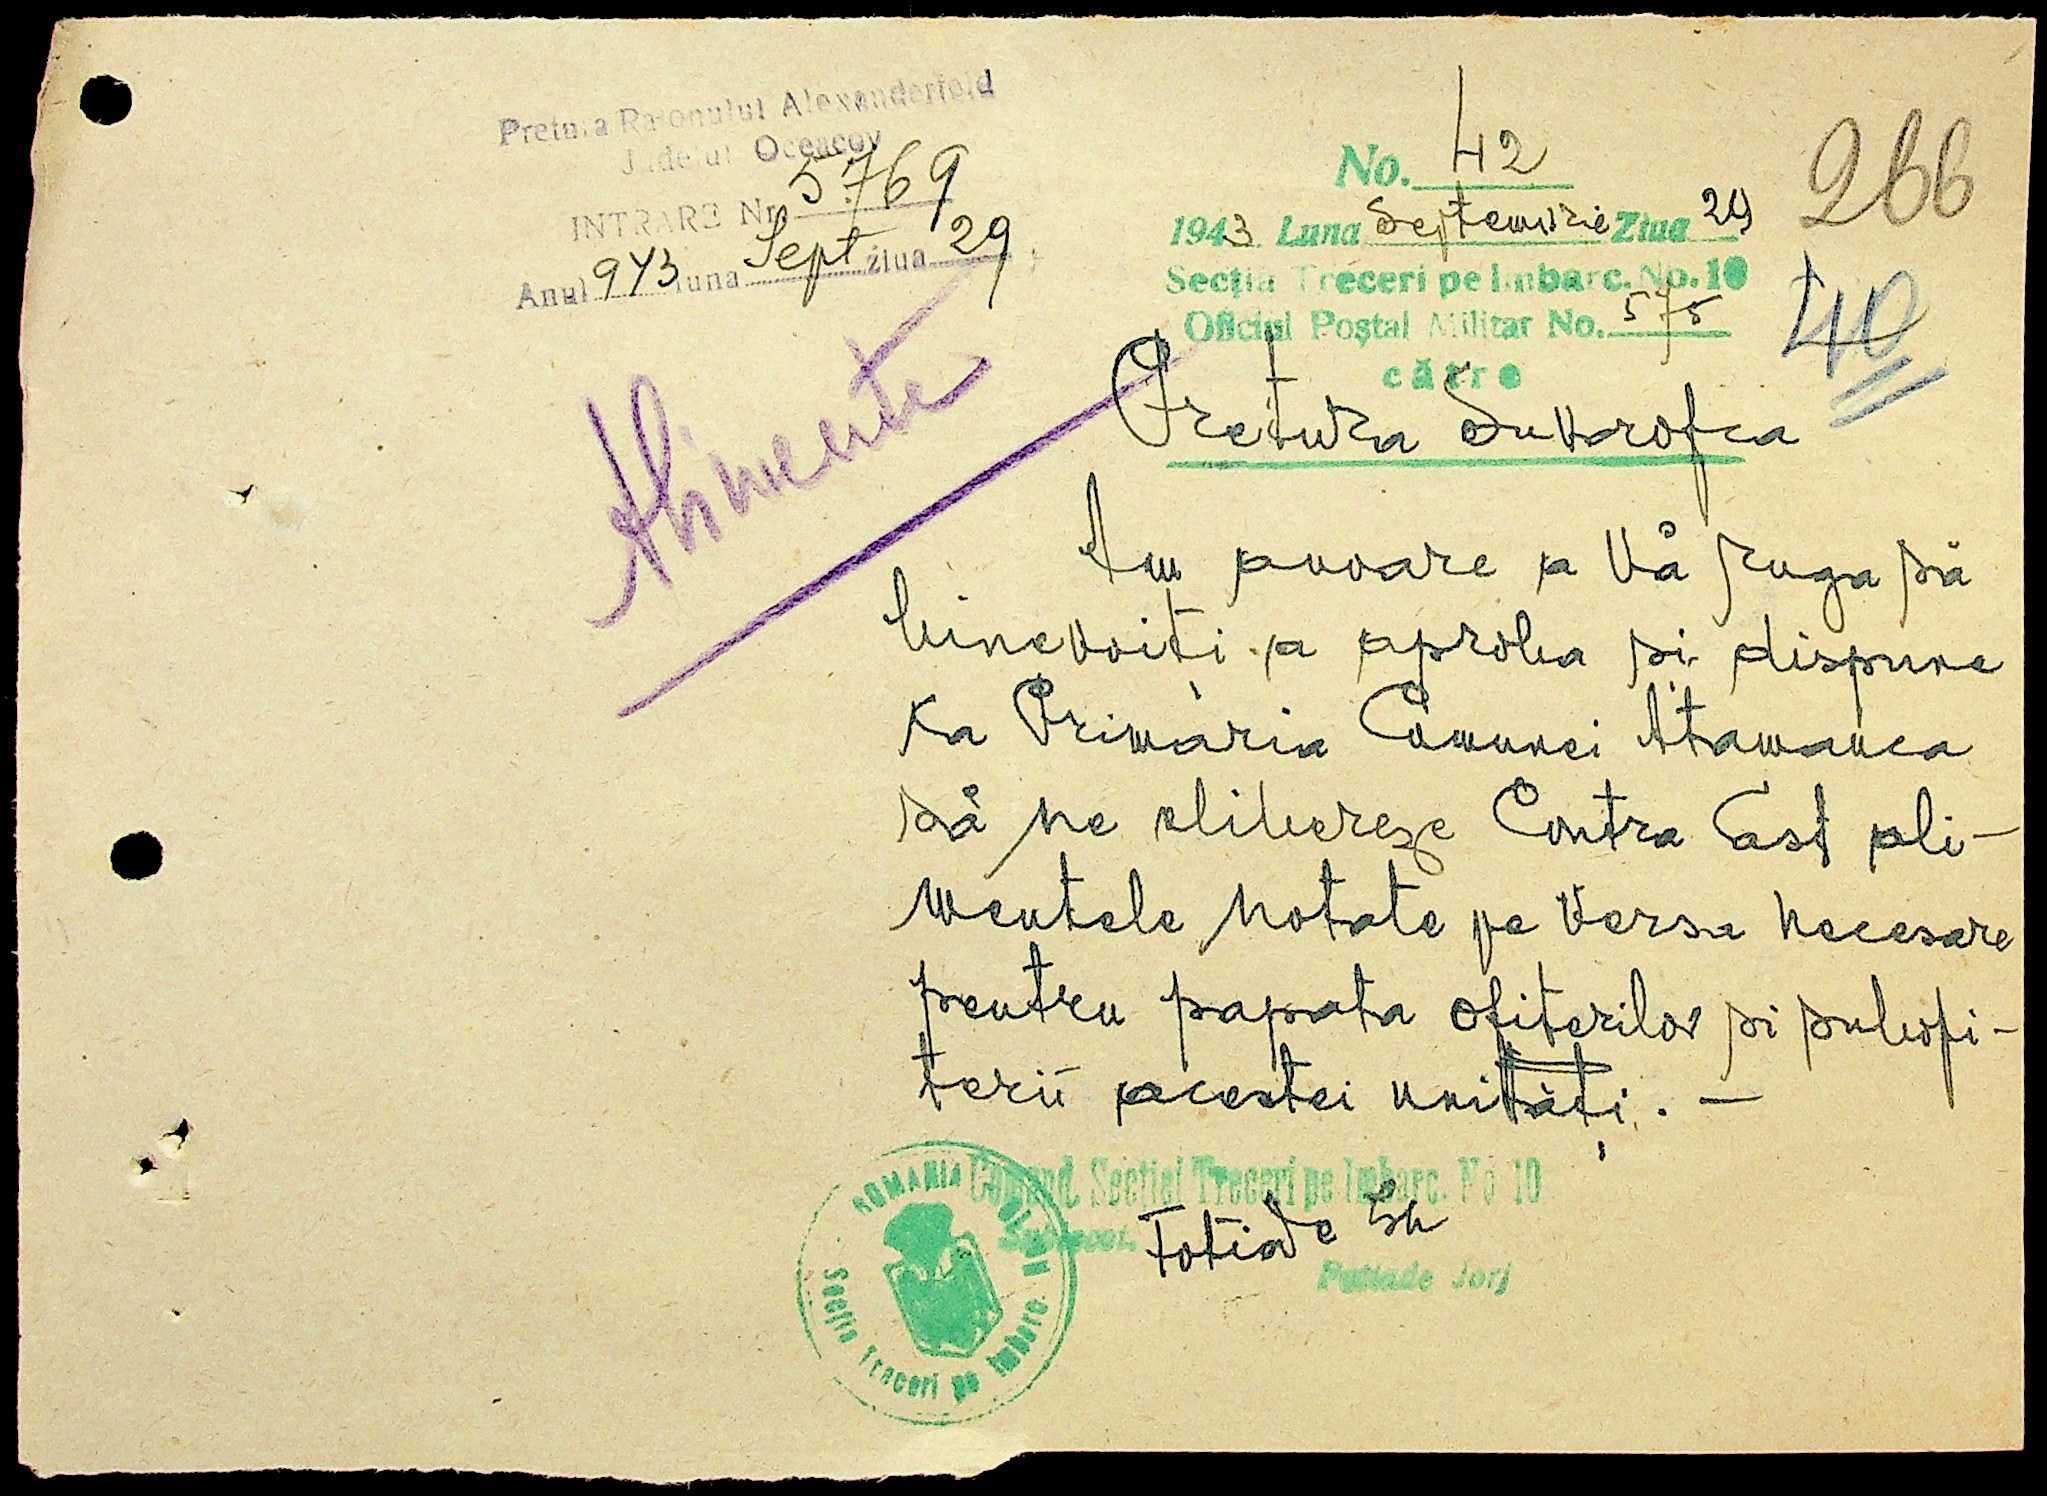 Pretura Raionului Alexanderfeld
Judetul Oceacov
INTRARE Nr. 5769
Anul 943 luna Sept ziua 29
No. 42
1943 Luna Septemvrie Ziua 29
Secția Treceri pe Imbarc. No. 10
Oficiul Poștal Militar No. 575
către
266
40
Pretura Suvrofca
Alimente
Am onoare a Vă ruga să
binevoiti a aproba si dispune
ka Primăria Comunei Atamanca
să ne elibereze Contra Cost ali-
mentele notate pe verso necesare
pentru popota ofiterilor si subofi-
terii acestei unități. —
Comand. Secției Treceri pe Imbarc. No 10
Fotiade
Jorj
ROMANIA
Secția Treceri pe Imbarc.